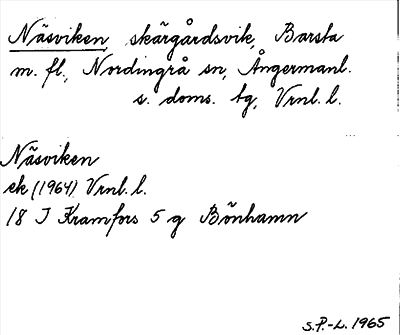 Näsviken, skärgårdsvik, Barsta
m. fl., Nordingrå sn, Ångermanl.
s. doms. tg, Vrnl. l.
Näsviken
ek (1964) Vrnl. l.
18 J Kramfors 5 g Bönhamn
S.P.-L. 1965